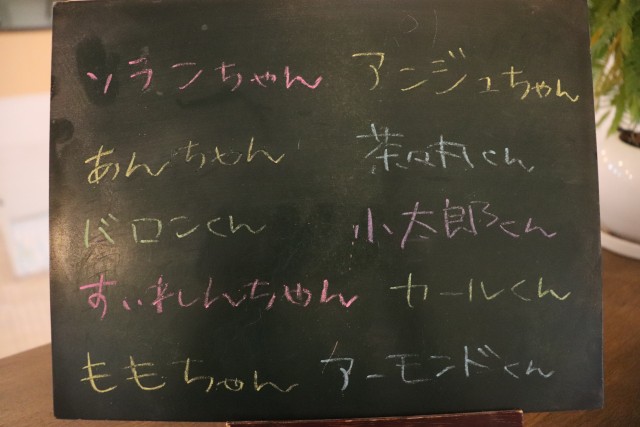 ソランちゃん アンジュちゃん
あんちゃん 茶々丸くん
バロンくん 小太郎くん
すいれんちゃん カールくん
ももちゃん アーモンドくん